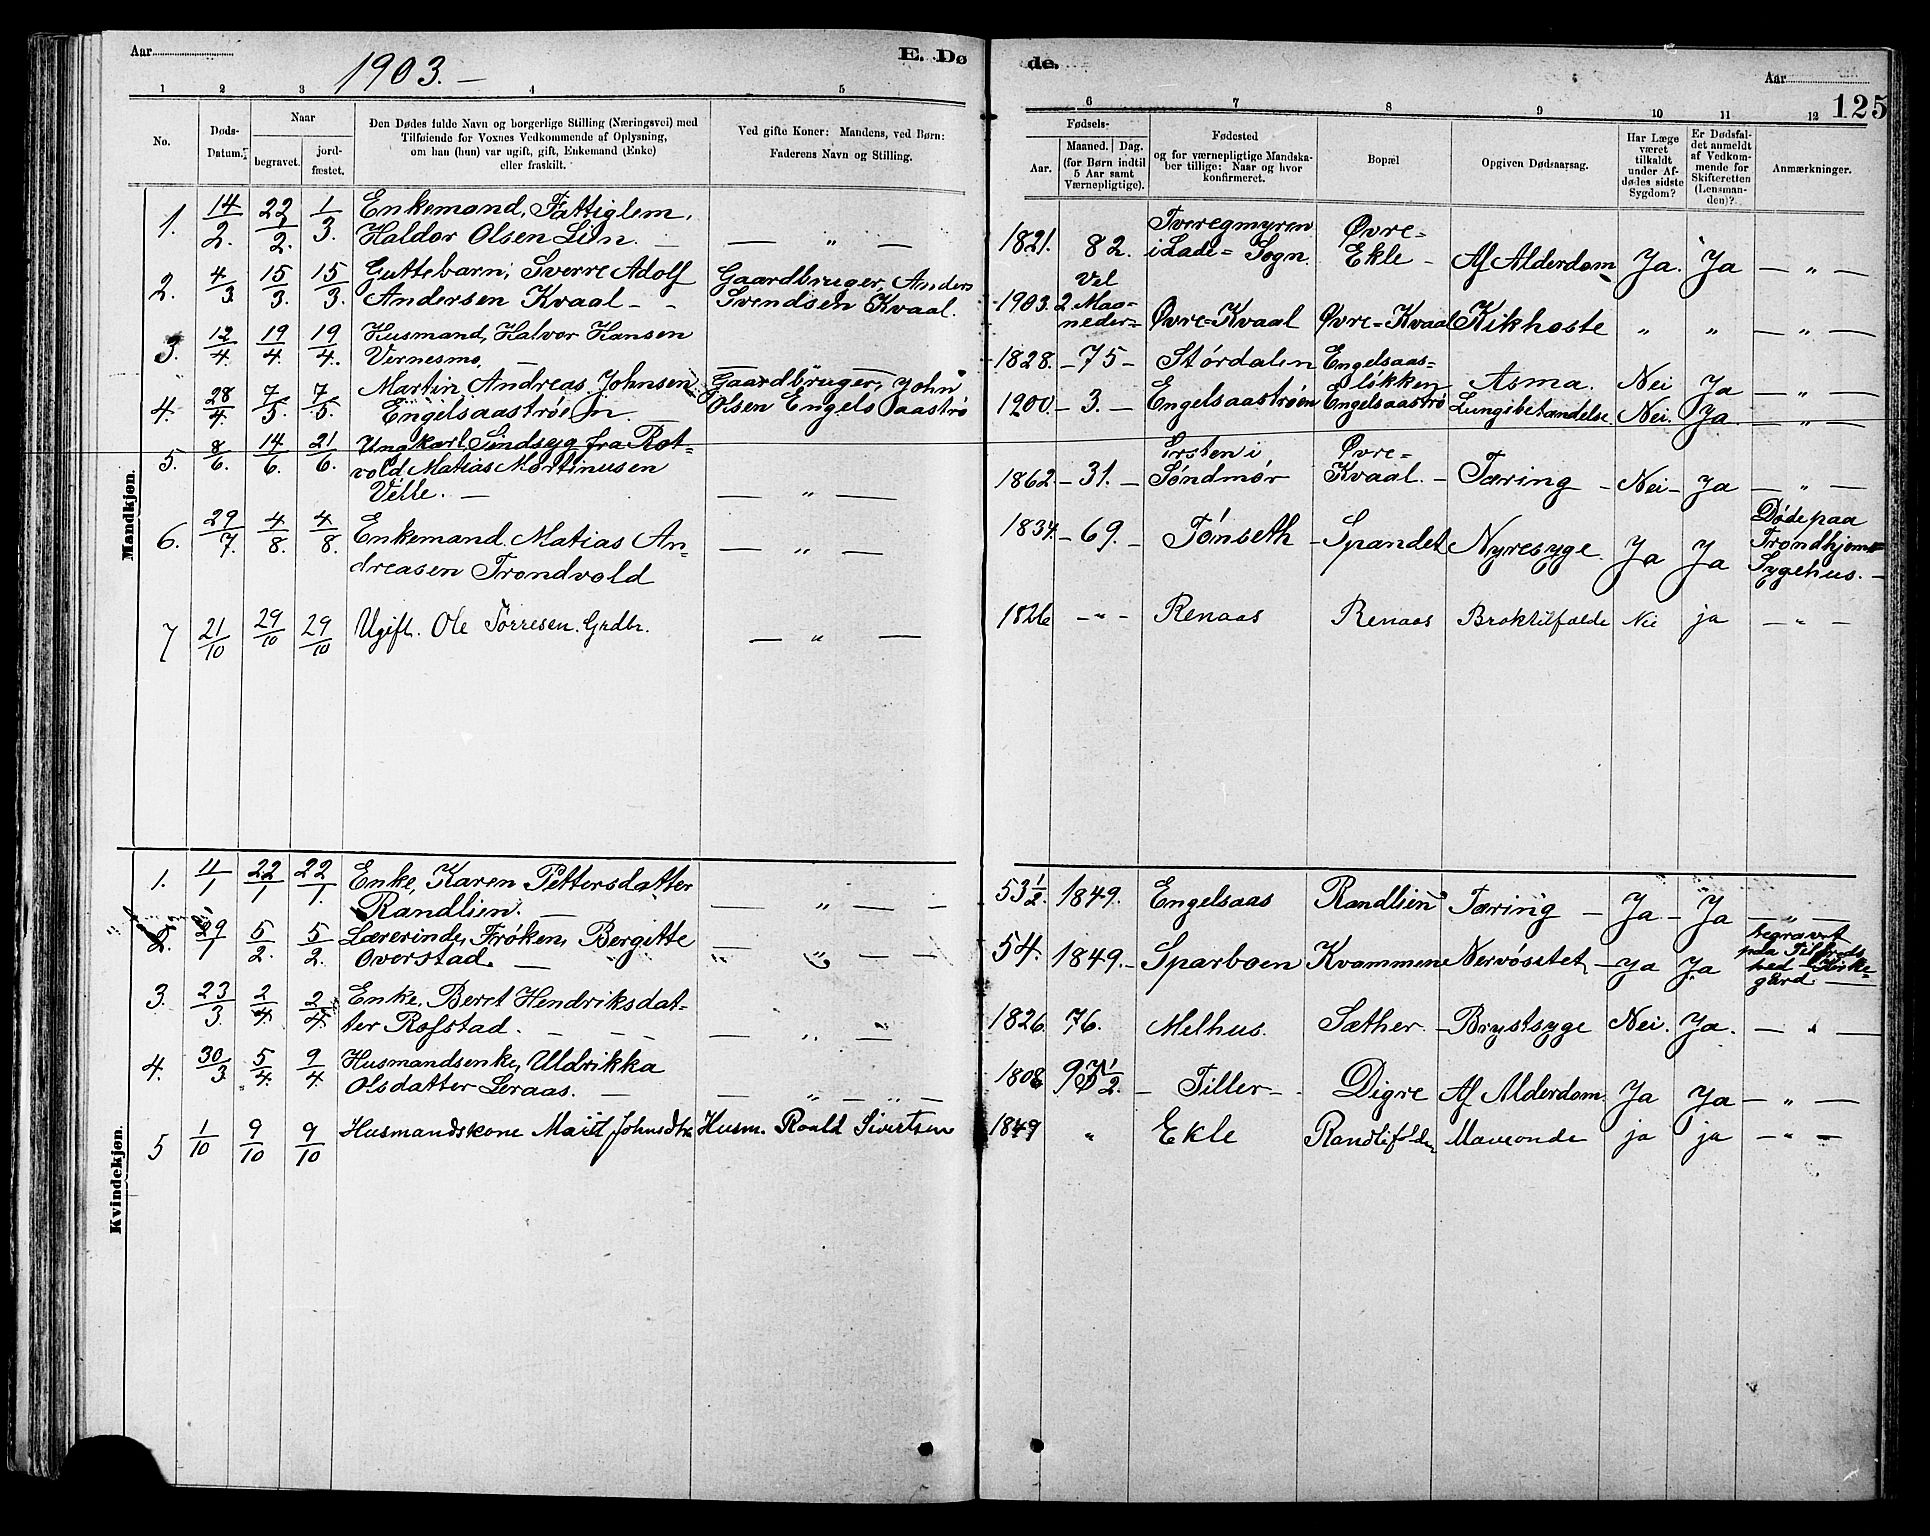 Aar
1903. —
E. Dø
de.
Aar
125
1 2 3 4 5 6 7 8 9 10 11 12
No.
Døds-Datum.
Naar
begravet.
jordfæstet.
Den Dødes fulde Navn og borgerlige Stilling (Næringsvei) med
Tilføiende for Voxnes Vedkommende af Oplysning,
om han (hun) var ugift, gift, Enkemand (Enke)
eller fraskilt.
Ved gifte Koner: Mandens, ved Børn:
Faderens Navn og Stilling.
Fødsels-
Aar.
Maaned. Dag.
(for Børn indtil
5 Aar samt
Værnepligtige).
Fødested
og for værnepligtige Mandska-
ber tillige: Naar og hvor
konfirmeret.
Bopæl
Opgiven Dødsaarsag.
Har Læge
været
tilkaldt
under Af-
dødes sidste
Sygdom?
Er Dødsfal-
det anmeldt
af Vedkom-
mende for
Skifteretten
(Lensman-
den)?
Anmærkninger.
Mandkjøn.
1. 14/2. 22/2. 1/3. Enkemand, Fattiglem,
Haldor Olsen Lien. — — „ —
1821. 82. Tveregmyren
i Lade= Sogn. Øvre=
Ekle — Af Alderdom Ja. Ja — „ —
2. 4/3 15/3. 15/3. Guttebarn, Sverre Adolf
Andersen Kvaal — — Gaardbruger, Anders
Svendsen Kvaal.
1903. Vel
2 Maa=
neder= Øvre=Kvaal Øvre=Kvaal Kikhoste „ „ — „ —
3. 12/4. 19/4. 19/4. Husmand, Halvor Hansen
Vernesmo, —
1828. — 75 — Størdalen Engelsaas=
løkken Asma. Nei Ja — „ —
4. 28/4. 7/5. 7/5. Martin Andreas Johnsen
Engelsaastrøen Gaardbruger, John
Olsen Engelsaastrø
1900. — 3. — Engelsaastrøen Engelsaastrø Lungebetændelse Nei. Ja. — „ —
5. 8/6. 14/6. 21/6. Ungkarl, Sindsyg fra Rot=
vold Matias Martinusen
Velle. — — „ —
1862. — 31. — Ersten i
Søndmør Øvre=
Kvaal. — Tæring — Nei — Ja — „ —
6. 29/7. 4/8. 4/8. Enkemand. Matias An=
dreasen Trondvold — „ —
1834. — 69. — Tønseth — Spandet Nyresyge. Ja Ja Døde paa
Trondhjems=
Sygehus. —
7 21/10 29/10 29/10 Ugift. Ole Tørresen. Grdbr. — „ —
1826 — „ — Renaas Renaas Broktilfælde Nei ja — „ —
Kvindekjøn.
1. 11/1 22/1 22/1. Enke, Karen Pettersdatter
Randlien. — — „ — —
53½. 1849. Engelsaas Randlien Tæring — Ja — Ja — „ —
2. 29/1 5/2. 5/2. Lærerinde, Frøken, Bergitte
Overstad. — — „ —
54. 1849. — Sparboen Kvammen Nervøsitet — Ja Ja begravet
paa Tilfreds
hed Kirke=
gård —
3. 23/3. 2/4. 2/4 Enke, Beret Hendriksdat=
ter Rofstad. — — — „ —
1826. 76. Melhus. Sæther. — Brystsyge Nei. Ja. — „ —
4. 30/3 5/4. 9/4 Husmandsenke, Uldrikka
Olsdatter Leraas. — — „ — „ —
1808 — Tiller — Digre Af Alderdom. Ja Ja — „ —
5 1/10 9/10 9/10 Husmandskone Marit Johnsdtr Husm. Roald Sivertsen
1849 „ Ekle Mavеonde ja ja — „ —